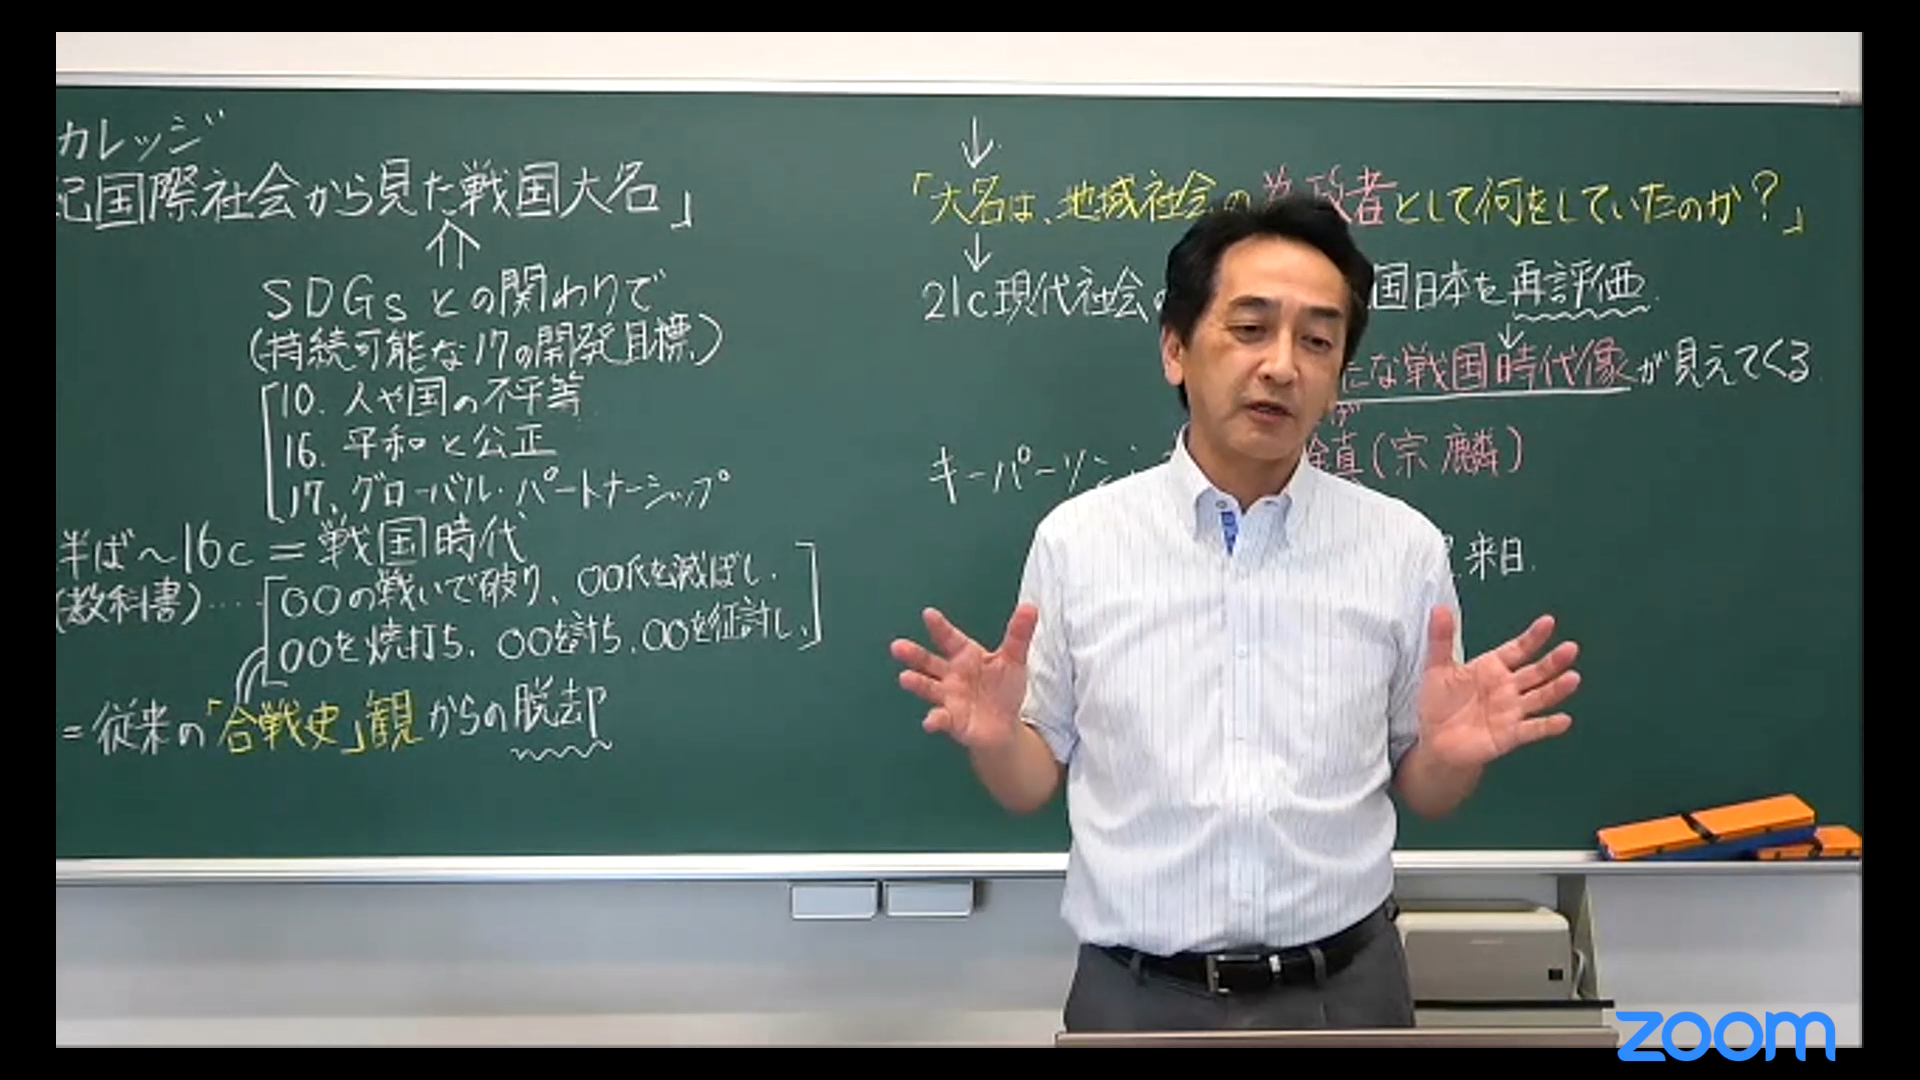 カレッジ
紀国際社会から見た戦国大名」
SDGsとの関わりで
(持続可能な17の開発目標)
10. 人や国の不平等
16. 平和と公正
17. グローバル・パートナーシップ
半ば〜16c=戦国時代
(教科書)‥‥
〇〇の戦いで破り、〇〇氏を滅ぼし、
〇〇を焼打ち、〇〇を討ち、〇〇を征討し、
=従来の「合戦史」観からの脱却
↓
「大名は、地域社会の為政者として何をしていたのか?」
↓
21c現代社会の 国日本を再評価.
↓
たな戦国時代像が見えてくる
キーパーソン: 鎮真(宗麟)
来日.
zoom